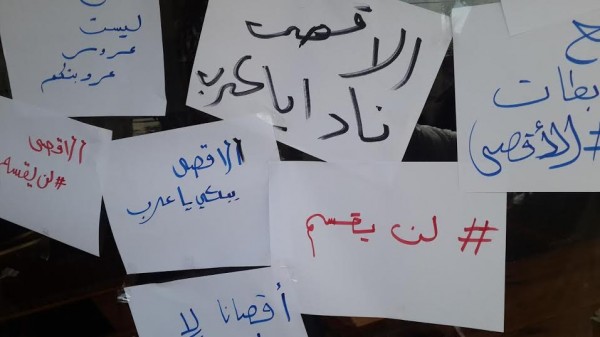 ليست
عروس
عروبتكم
الاقصى
نادا يا عرب
ح
بطات
#الأقصى
الاقصى
#لن يقسم
الاقصى
يبكي يا عرب
# لن يقسم
أقصانا لا